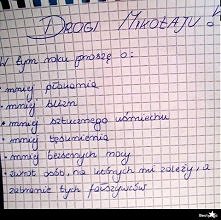 DROGI MIKOŁAJU!
W tym roku proszę o:
• mniej płakania
• mniej blizn
• mniej sztucznego uśmiechu
• mniej tęsknienia
• mniej bezsennych nocy
• zwrot osób, na których mi zależy, a
zabranie tych fałszywców